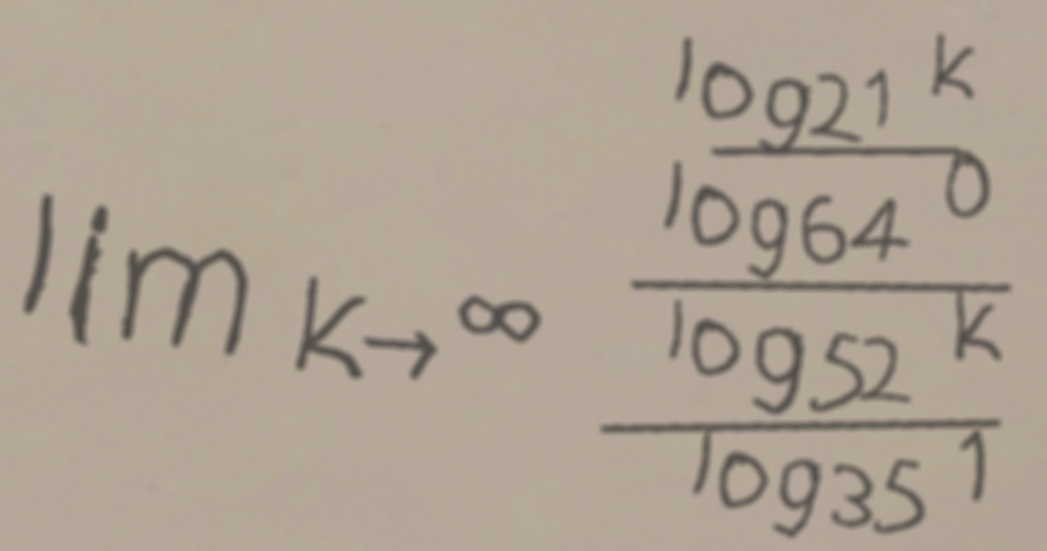 lim k→∞
log21 k
log64 0
log52 k
log35 1